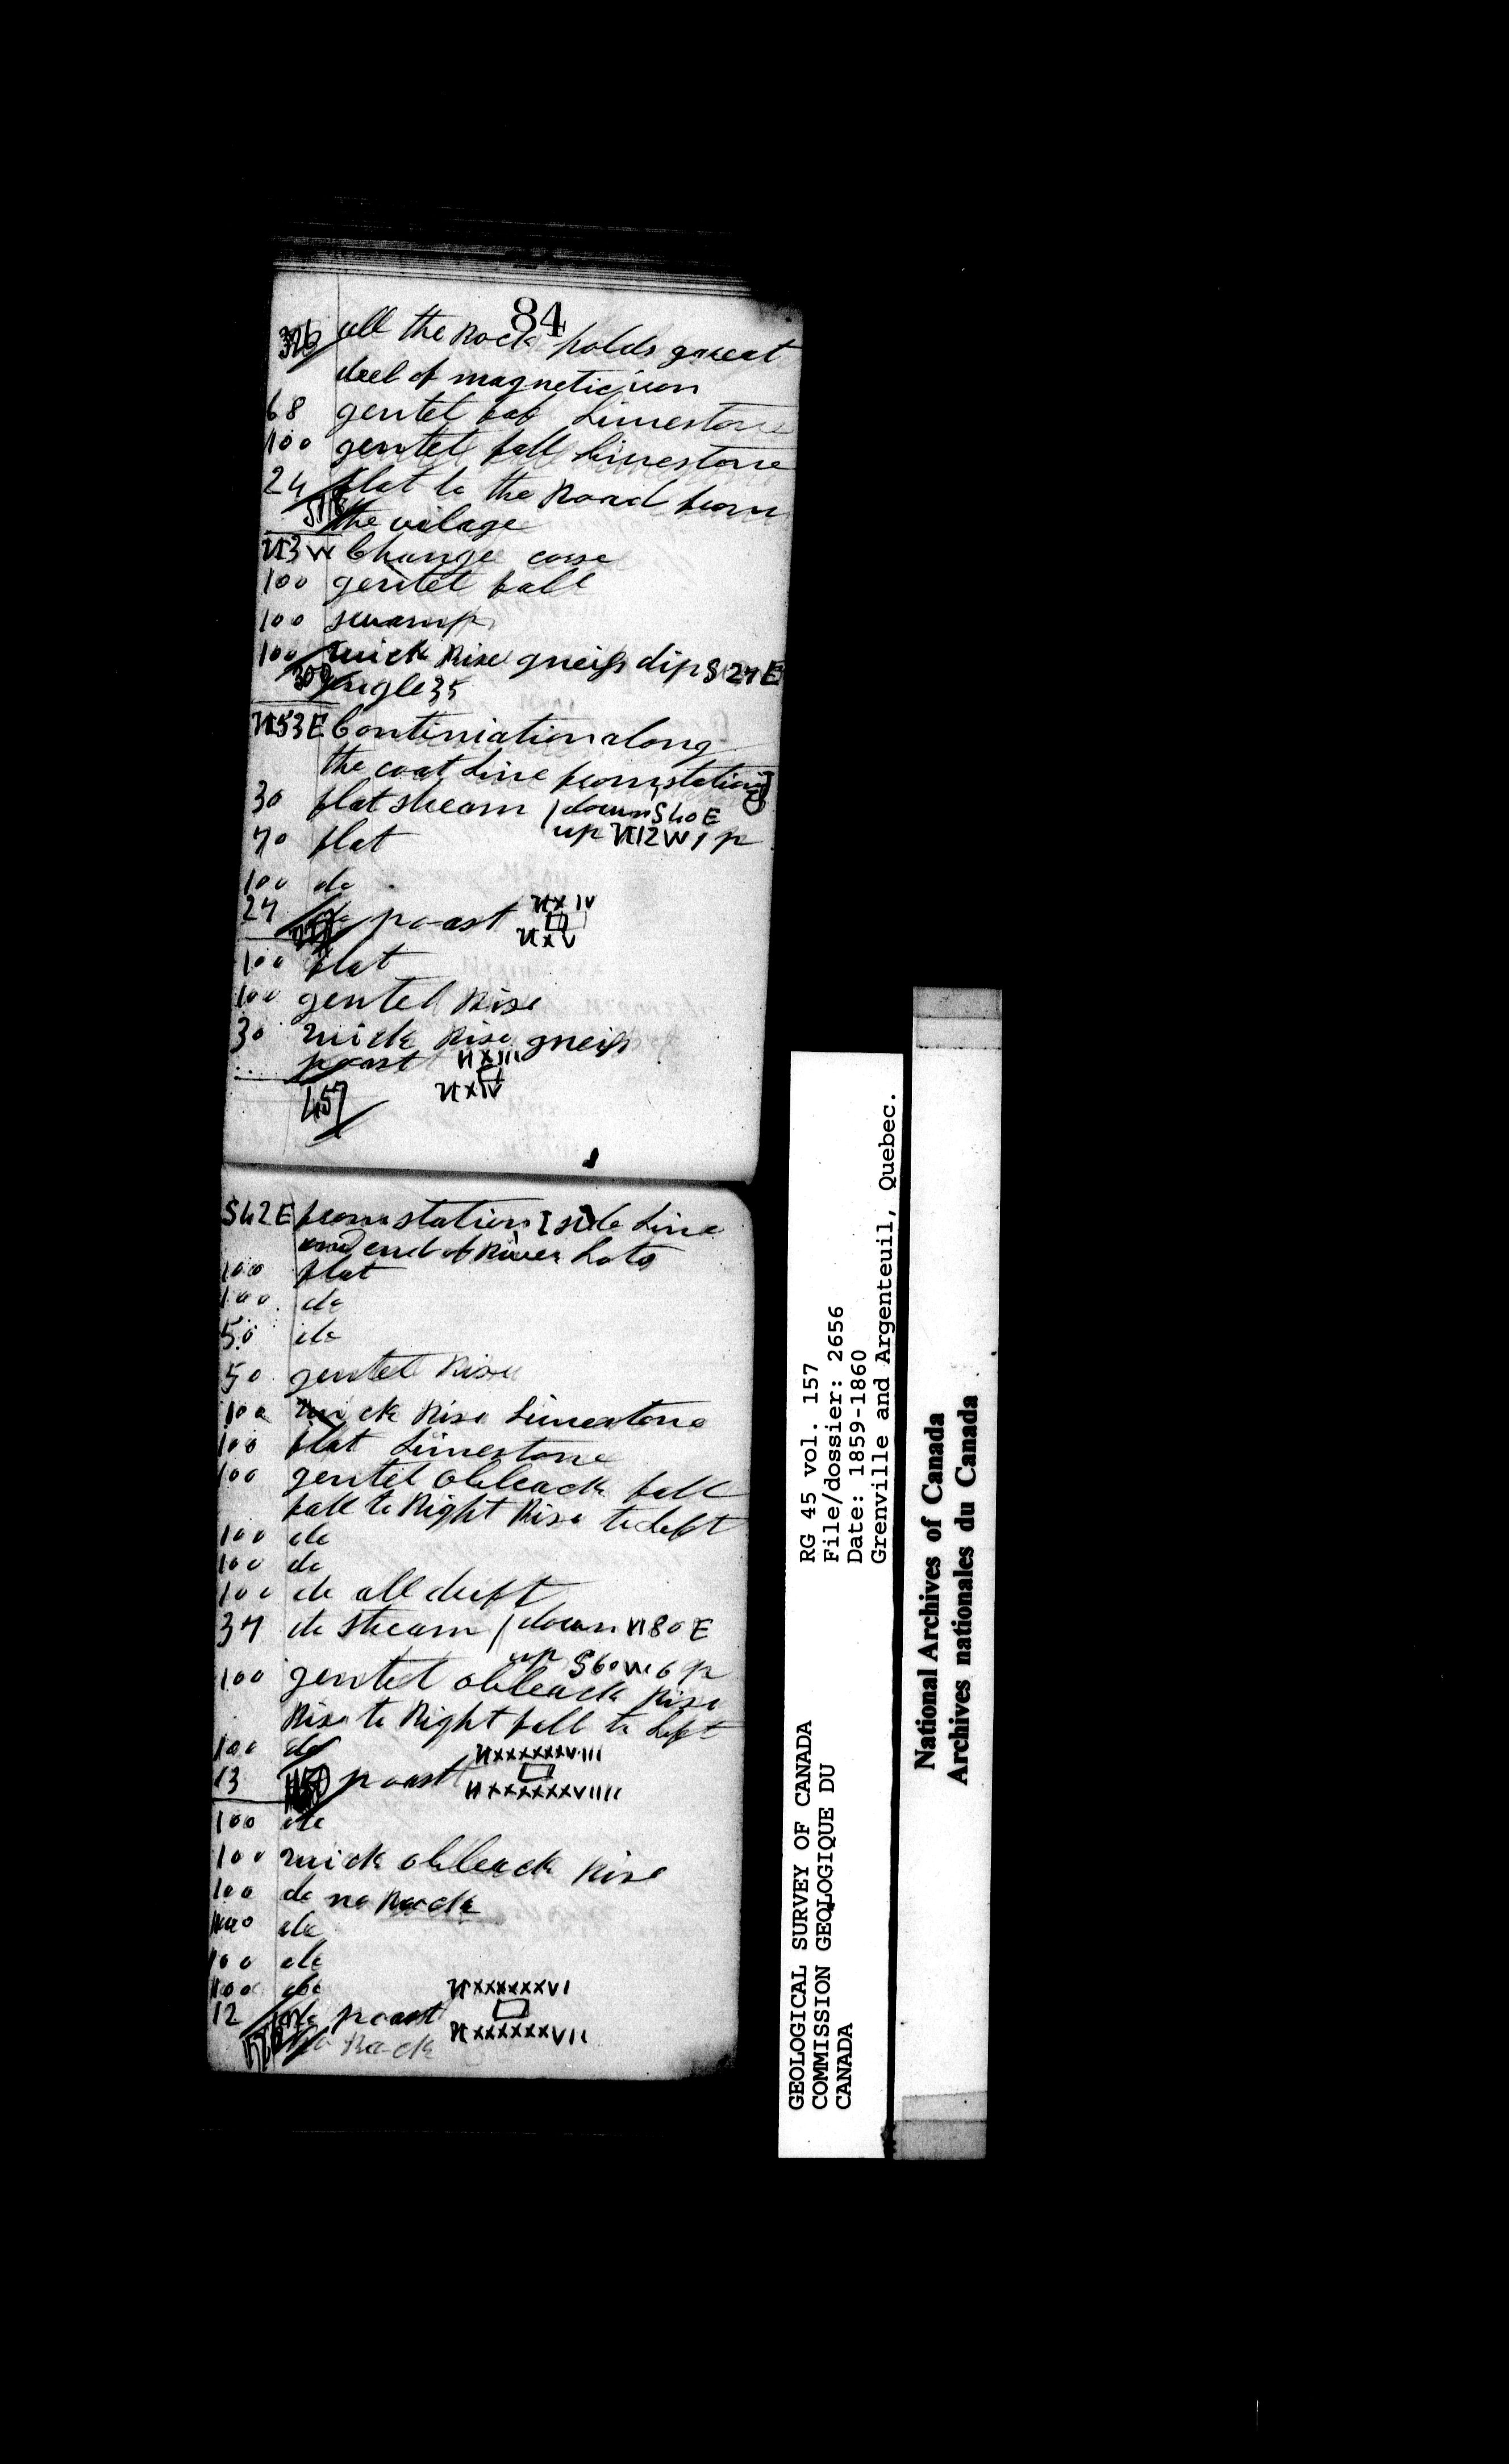 84
326 all the Rock holds graeat
deel of magnetic iron
68 gentel fall Limestone
100 gentel fall Limestone
24 flat to the Road from
the vilage
N3W Change corse
100 gentel fall
100 swamp
100 quick Rise gneifs dip S27E
300 angle 35
N53E Continiation along
the coat Line from station
30 flat stream / down S40E
up N12W 1 p
70 flat
100 do
27 do poast NXIV
NXV
100 flat
100 gentel Rise
30 quick Rise gneifs
poast NXIII
NXIV
457
S42E from station I side Line
and end of River Lots
100 flat
100 do
50 do
50 gentel Rise
100 quick Rise Limestone
100 flat Limestone
100 gentel obleack fall
fall to Right Rise to Left
100 do
100 do
100 do all drift
37 do stream / down N80E
up S60W 6 p
100 gentel obleack Rise
Rise to Right fall to Left
100 do NXXXXXXVIII
13 poast
NXXXXXXVIIII
100 do
100 quick obleack Rise
100 do no Rock
100 do
100 do
100 do NXXXXXXVI
12 do poast
NXXXXXXVII
no Rock
GEOLOGICAL SURVEY OF CANADA
COMMISSION GEOLOGIQUE DU
CANADA
RG 45 vol. 157
File/dossier: 2656
Date: 1859-1860
Grenville and Argenteuil, Quebec.
National Archives of Canada
Archives nationales du Canada